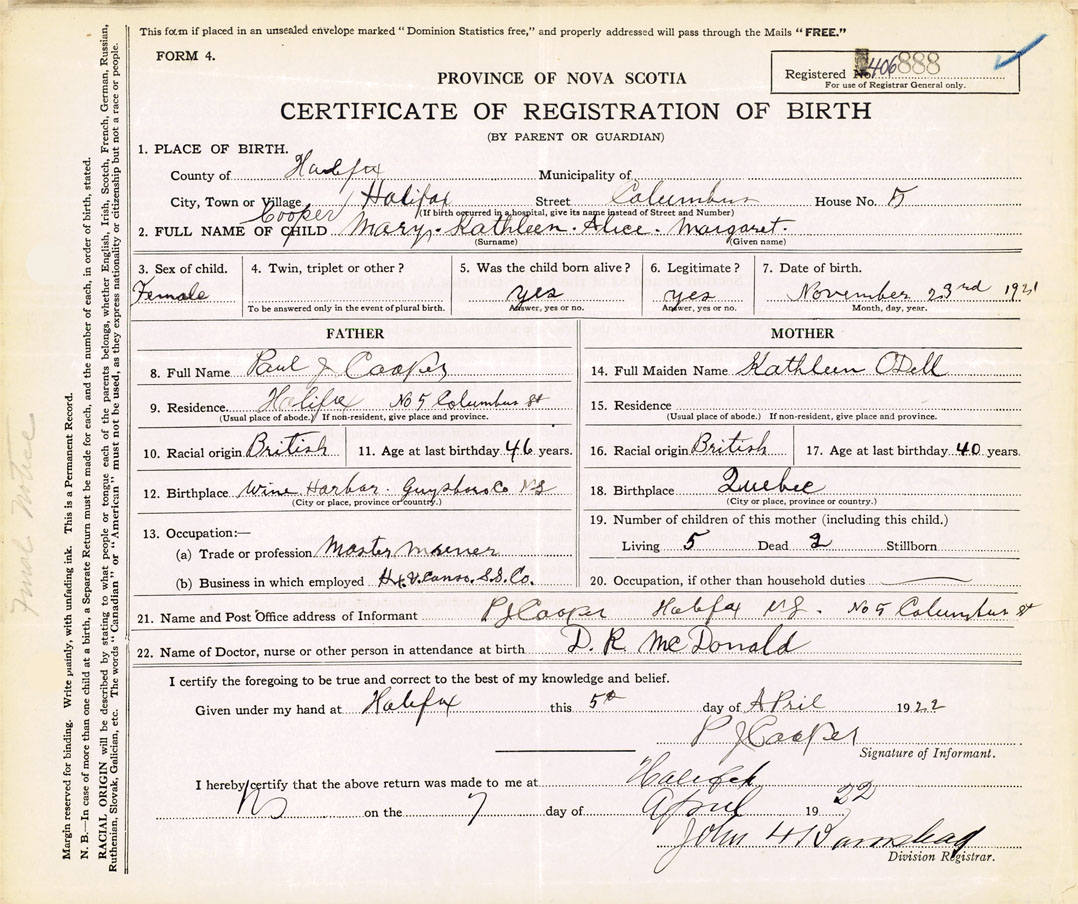 This form if placed in an unsealed envelope marked "Dominion Statistics free," and properly addressed will pass through the Mails "FREE."
FORM 4.
Registered No. 406888
For use of Registrar General only.
PROVINCE OF NOVA SCOTIA
CERTIFICATE OF REGISTRATION OF BIRTH
(BY PARENT OR GUARDIAN)
1. PLACE OF BIRTH.
County of Halifax Municipality of
City, Town or Village Halifax Street Columbus House No. 5
(If birth occurred in a hospital, give its name instead of Street and Number)
Cooper/
2. FULL NAME OF CHILD Mary. Kathleen. Alice. Margaret.
(Surname) (Given name)
3. Sex of child. 4. Twin, triplet or other? 5. Was the child born alive? 6. Legitimate? 7. Date of birth.
Female yes yes November 23rd 1921
To be answered only in the event of plural birth. Answer, yes or no. Answer, yes or no. Month, day, year.
FATHER
8. Full Name Paul J Cooper
9. Residence Halifax No 5 Columbus St
(Usual place of abode.) If non-resident, give place and province.
10. Racial origin British 11. Age at last birthday 46 years.
12. Birthplace Wine Harbor. Guysboro Co NS
(City or place, province or country.)
13. Occupation:—
(a) Trade or profession Master Mariner
(b) Business in which employed Hx. & Canso. S.S. Co.
MOTHER
14. Full Maiden Name Kathleen ODell
15. Residence
(Usual place of abode.) If non-resident, give place and province.
16. Racial origin British 17. Age at last birthday 40 years.
18. Birthplace Quebec
(City or place, province or country.)
19. Number of children of this mother (including this child.)
Living 5 Dead 2 Stillborn
20. Occupation, if other than household duties
21. Name and Post Office address of Informant P J Cooper Halifax N S. No 5 Columbus St
22. Name of Doctor, nurse or other person in attendance at birth D. R. McDonald
I certify the foregoing to be true and correct to the best of my knowledge and belief.
Given under my hand at Halifax this 5th day of April 1922
P J Cooper
Signature of Informant.
I hereby certify that the above return was made to me at Halifax
NS on the 7 day of April 1922
John H Barnstead
Division Registrar.
Final Notice
Margin reserved for binding. Write plainly, with unfading ink. This is a Permanent Record.
N. B.—In case of more than one child at a birth, a Separate Return must be made for each, and the number of each, in order of birth, stated.
RACIAL ORIGIN will be described by stating to what people or tongue each of the parents belongs, whether English, Irish, Scotch, French, German, Russian,
Ruthenian, Slovak, Galician, etc. The words "Canadian" or "American" must not be used, as they express nationality or citizenship but not a race or people.